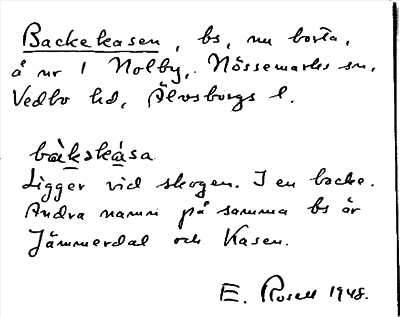 Backekasen, bs, nu borta,
å nr 1 Nolby, Nössemarks sn,
Vedbo hd, Älvsborgs l.
bàkskåsa
Ligger vid skogen. I en backe.
Andra namn på samma bs är
Jämmerdal och Kasen.
E. Rosell 1948.